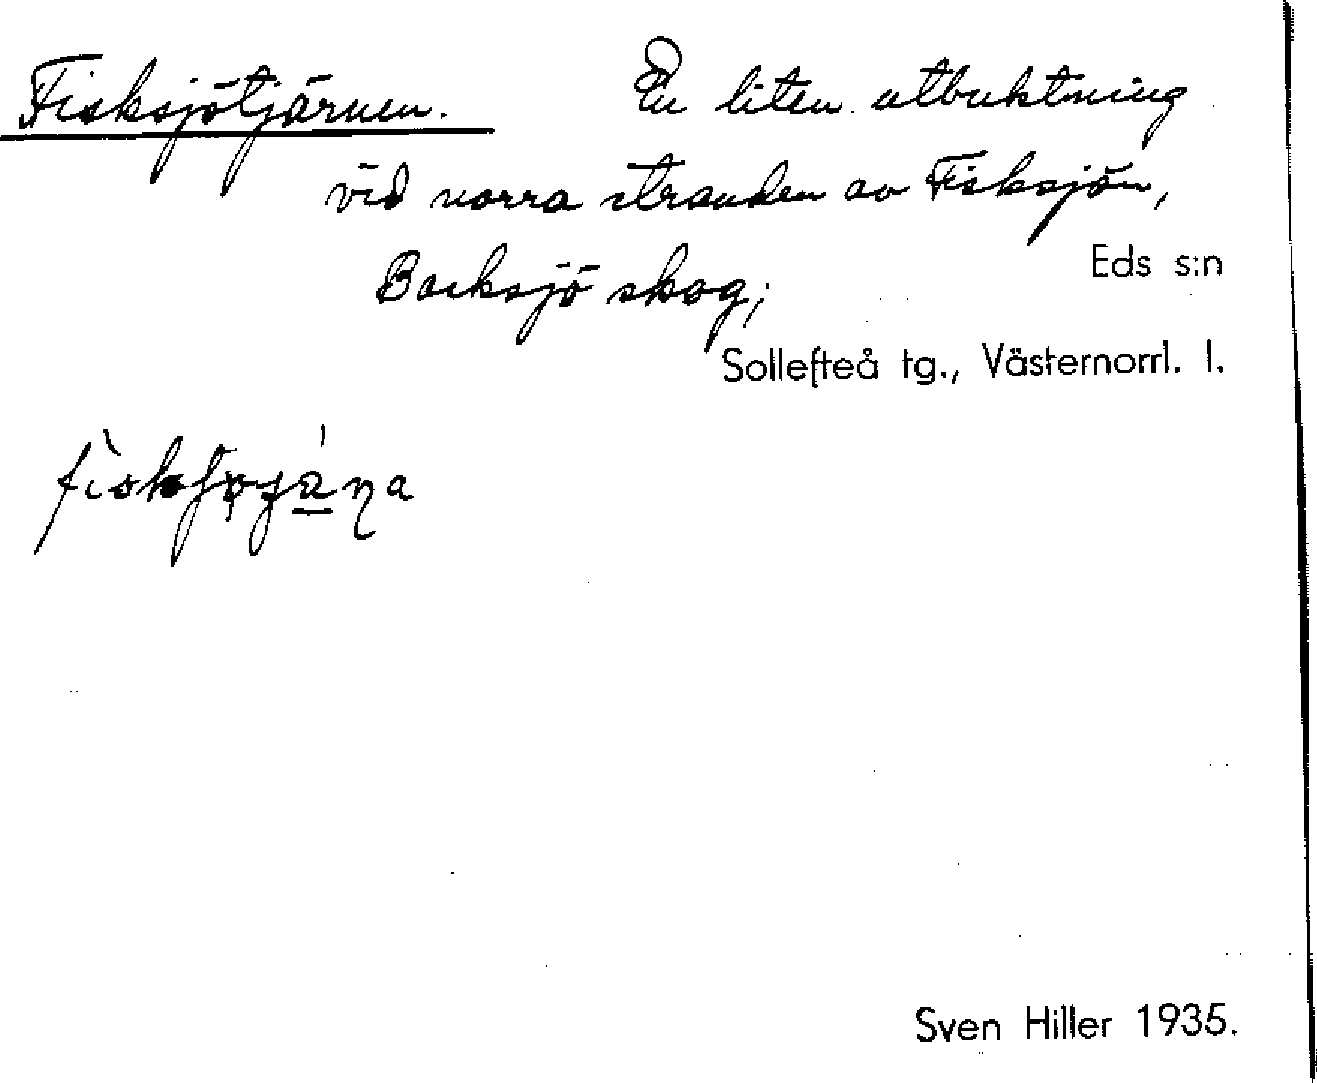 Fisksjötjärnen. En liten utbuktning
vid norra stranden av Fisksjön,
Backsjö skog;
Eds s:n
Sollefteå tg., Västernorrl. l.
Sven Hiller 1935.